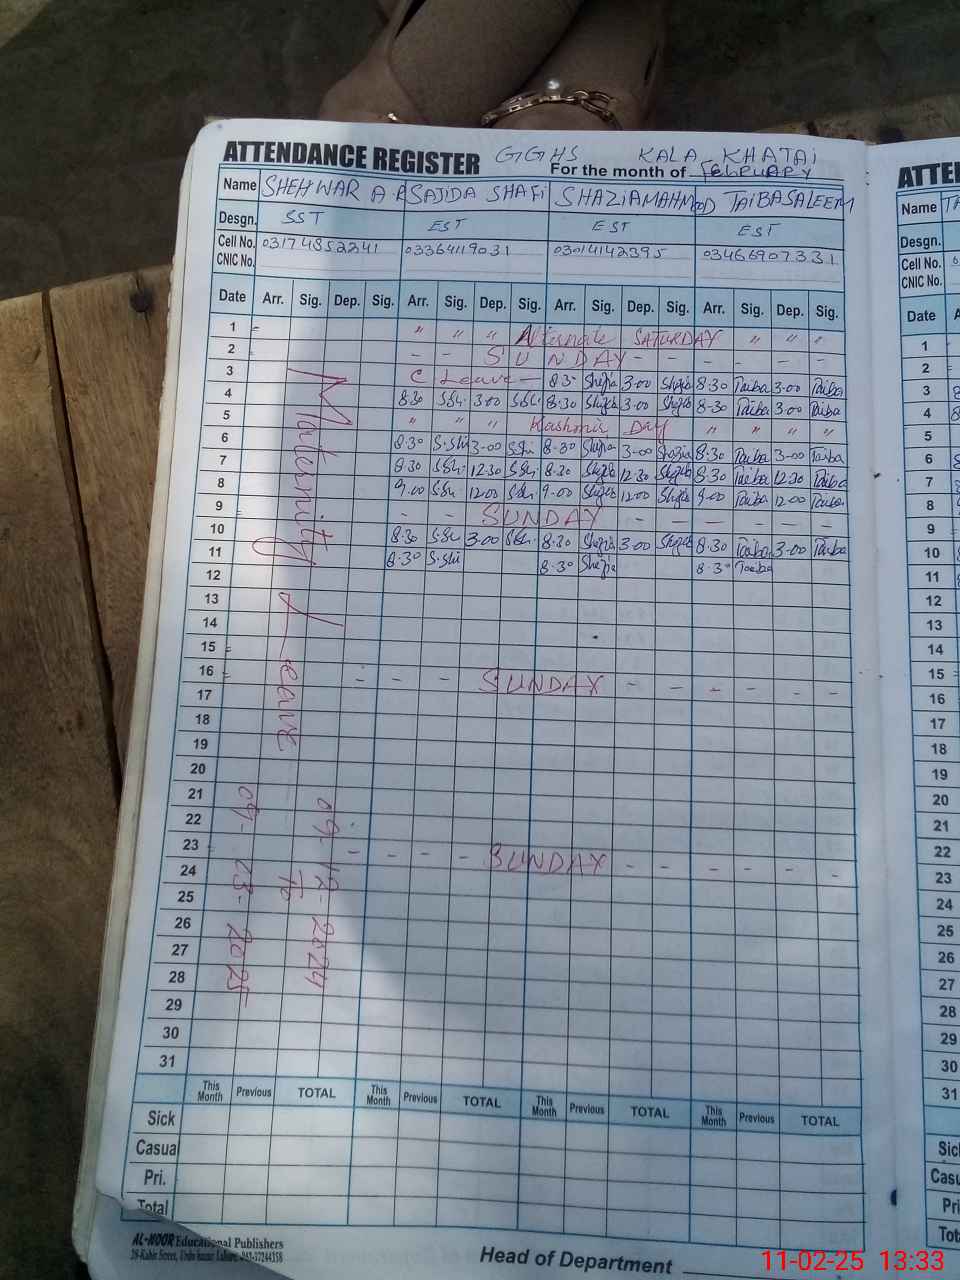 ATTENDANCE REGISTER GGHS KALA KHATAI
For the month of FEBRUARY
Name SHEHWAR A R SAJIDA SHAFI SHAZIA MAHMOOD TAIBA SALEEM
Desgn. SST EST EST EST
Cell No. 03174852241 03364119031 03014142395 03466907331
CNIC No.
Date Arr. Sig. Dep. Sig. Arr. Sig. Dep. Sig. Arr. Sig. Dep. Sig. Arr. Sig. Dep. Sig.
1 = " " " Alternate SATURDAY " " "
2 = - - SUNDAY - - - - - -
3 C Leave - 8.30 Shazia 3.00 Shazia 8.30 Taiba 3.00 Taiba
4 8.30 S.Shi 3.00 S.Shi 8.30 Shazia 3.00 Shazia 8.30 Taiba 3.00 Taiba
5 " " " Kashmir Day " " " "
6 8.30 S.Shi 3.00 S.Shi 8.30 Shazia 3.00 Shazia 8.30 Taiba 3.00 Taiba
7 8.30 S.Shi 12.30 S.Shi 8.30 Shazia 12.30 Shazia 8.30 Taiba 12.30 Taiba
8 9.00 S.Shi 12.00 S.Shi 9.00 Shazia 12.00 Shazia 9.00 Taiba 12.00 Taiba
9 = - - SUNDAY - - - - - -
10 8.30 S.Shi 3.00 S.Shi 8.30 Shazia 3.00 Shazia 8.30 Taiba 3.00 Taiba
11 8.30 S.Shi 8.30 Shazia 8.30 Taiba
12
13
14
15 =
16 = - - - SUNDAY - - - - - -
17
18
19
20
21
22
23 = - - - - SUNDAY - - - - - -
24
25
26
27
28
29
30
31
Maternity Leave
09-12-2024
To
09-03-2025
This Month Previous TOTAL This Month Previous TOTAL This Month Previous TOTAL This Month Previous TOTAL
Sick
Casual
Pri.
Total
AL-NOOR Educational Publishers
Head of Department
ATTE
Name TA
Desgn.
Cell No.
CNIC No.
Date A
1
2
3
4
5
6
7
8
9
10
11
12
13
14
15
16
17
18
19
20
21
22
23
24
25
26
27
28
29
30
31
Sic
Casu
Pri
Tot
11-02-25 13:33